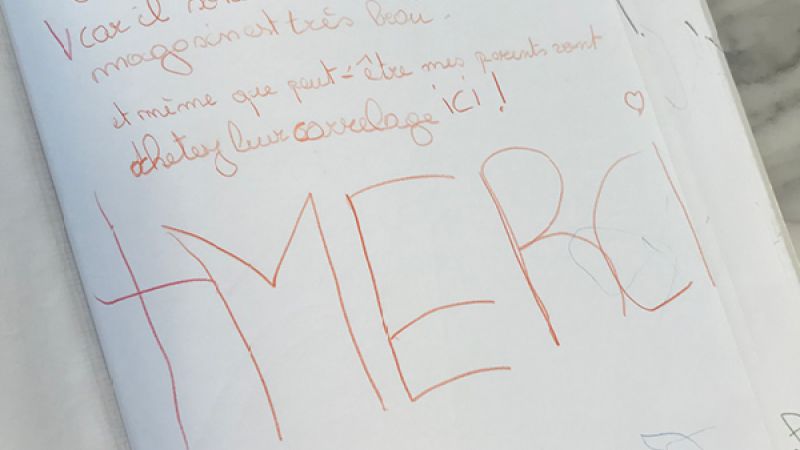 V car il
magasin est très beau.
et même que peut-être mes parents vont
achetez leur carrelage ICI !
MERCI